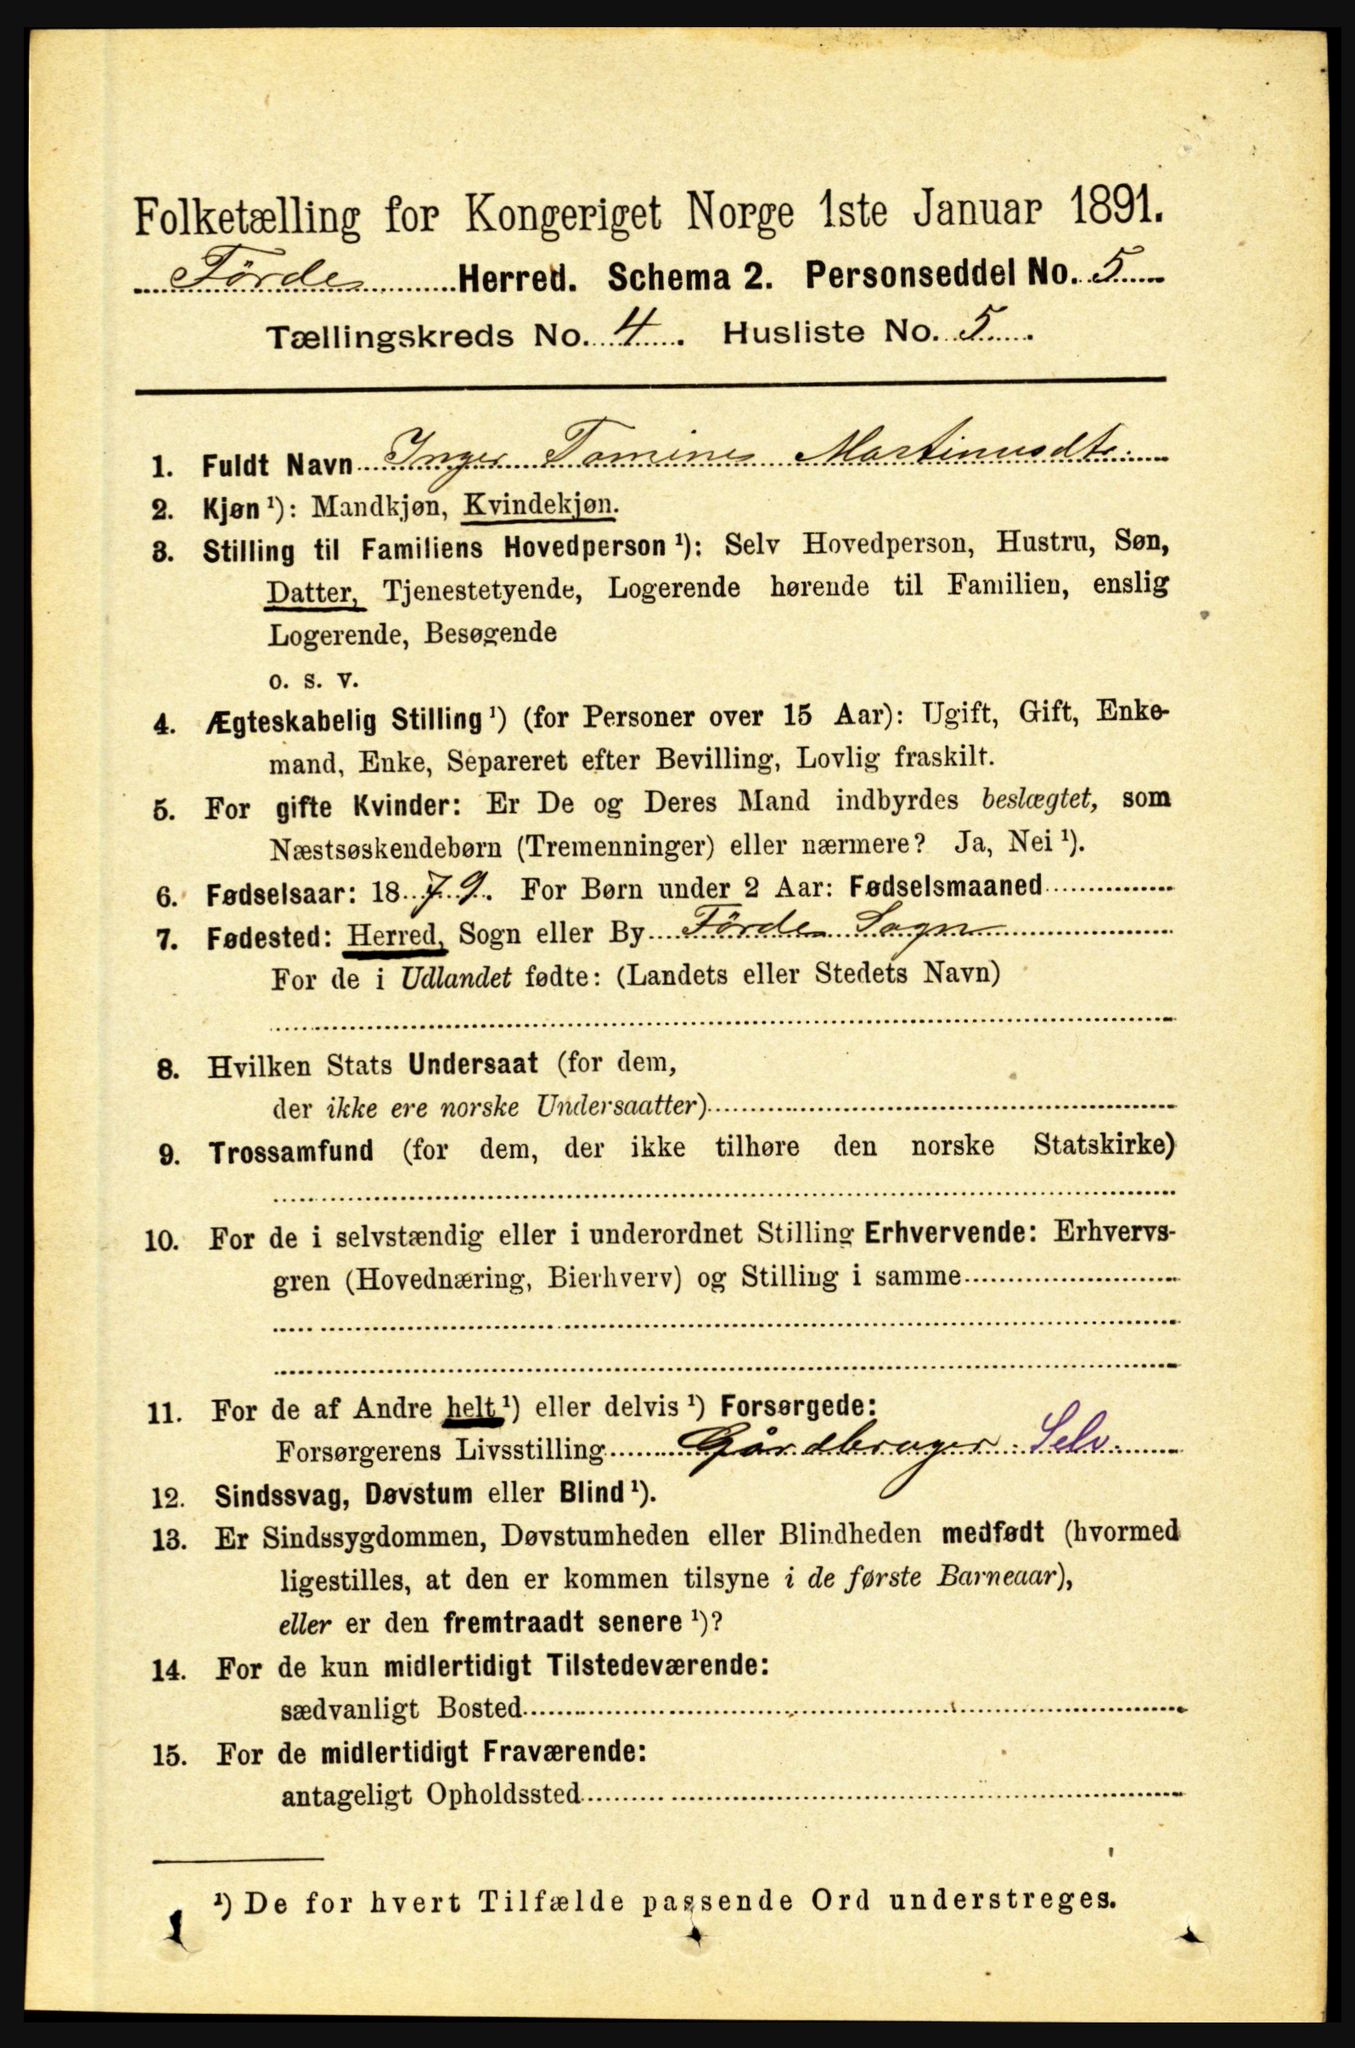 Folketælling for Kongeriget Norge 1ste Januar 1891.
Førde Herred. Schema 2. Personseddel No. 5
Tællingskreds No. 4. Husliste No. 5.
1. Fuldt Navn Inger Tomine Martinusdtr.
2. Kjøn ¹): Mandkjøn, Kvindekjøn.
3. Stilling til Familiens Hovedperson ¹): Selv Hovedperson, Hustru, Søn,
Datter, Tjenestetyende, Logerende hørende til Familien, enslig
Logerende, Besøgende
o. s. v.
4. Ægteskabelig Stilling ¹) (for Personer over 15 Aar): Ugift, Gift, Enke-
mand, Enke, Separeret efter Bevilling, Lovlig fraskilt.
5. For gifte Kvinder: Er De og Deres Mand indbyrdes beslægtet, som
Næstsøskendebørn (Tremenninger) eller nærmere? Ja, Nei ¹).
6. Fødselsaar: 1879. For Børn under 2 Aar: Fødselsmaaned
7. Fødested: Herred, Sogn eller By Førde Sogn
For de i Udlandet fødte: (Landets eller Stedets Navn)
8. Hvilken Stats Undersaat (for dem,
der ikke ere norske Undersaatter)
9. Trossamfund (for dem, der ikke tilhøre den norske Statskirke)
10. For de i selvstændig eller i underordnet Stilling Erhvervende: Erhvervs-
gren (Hovednæring, Bierhverv) og Stilling i samme
11. For de af Andre helt ¹) eller delvis ¹) Forsørgede:
Forsørgerens Livsstilling Gårdbruger. Selv.
12. Sindssvag, Døvstum eller Blind ¹).
13. Er Sindssygdommen, Døvstumheden eller Blindheden medfødt (hvormed
ligestilles, at den er kommen tilsyne i de første Barneaar),
eller er den fremtraadt senere ¹)?
14. For de kun midlertidigt Tilstedeværende:
sædvanligt Bosted
15. For de midlertidigt Fraværende:
antageligt Opholdssted
¹) De for hvert Tilfælde passende Ord understreges.